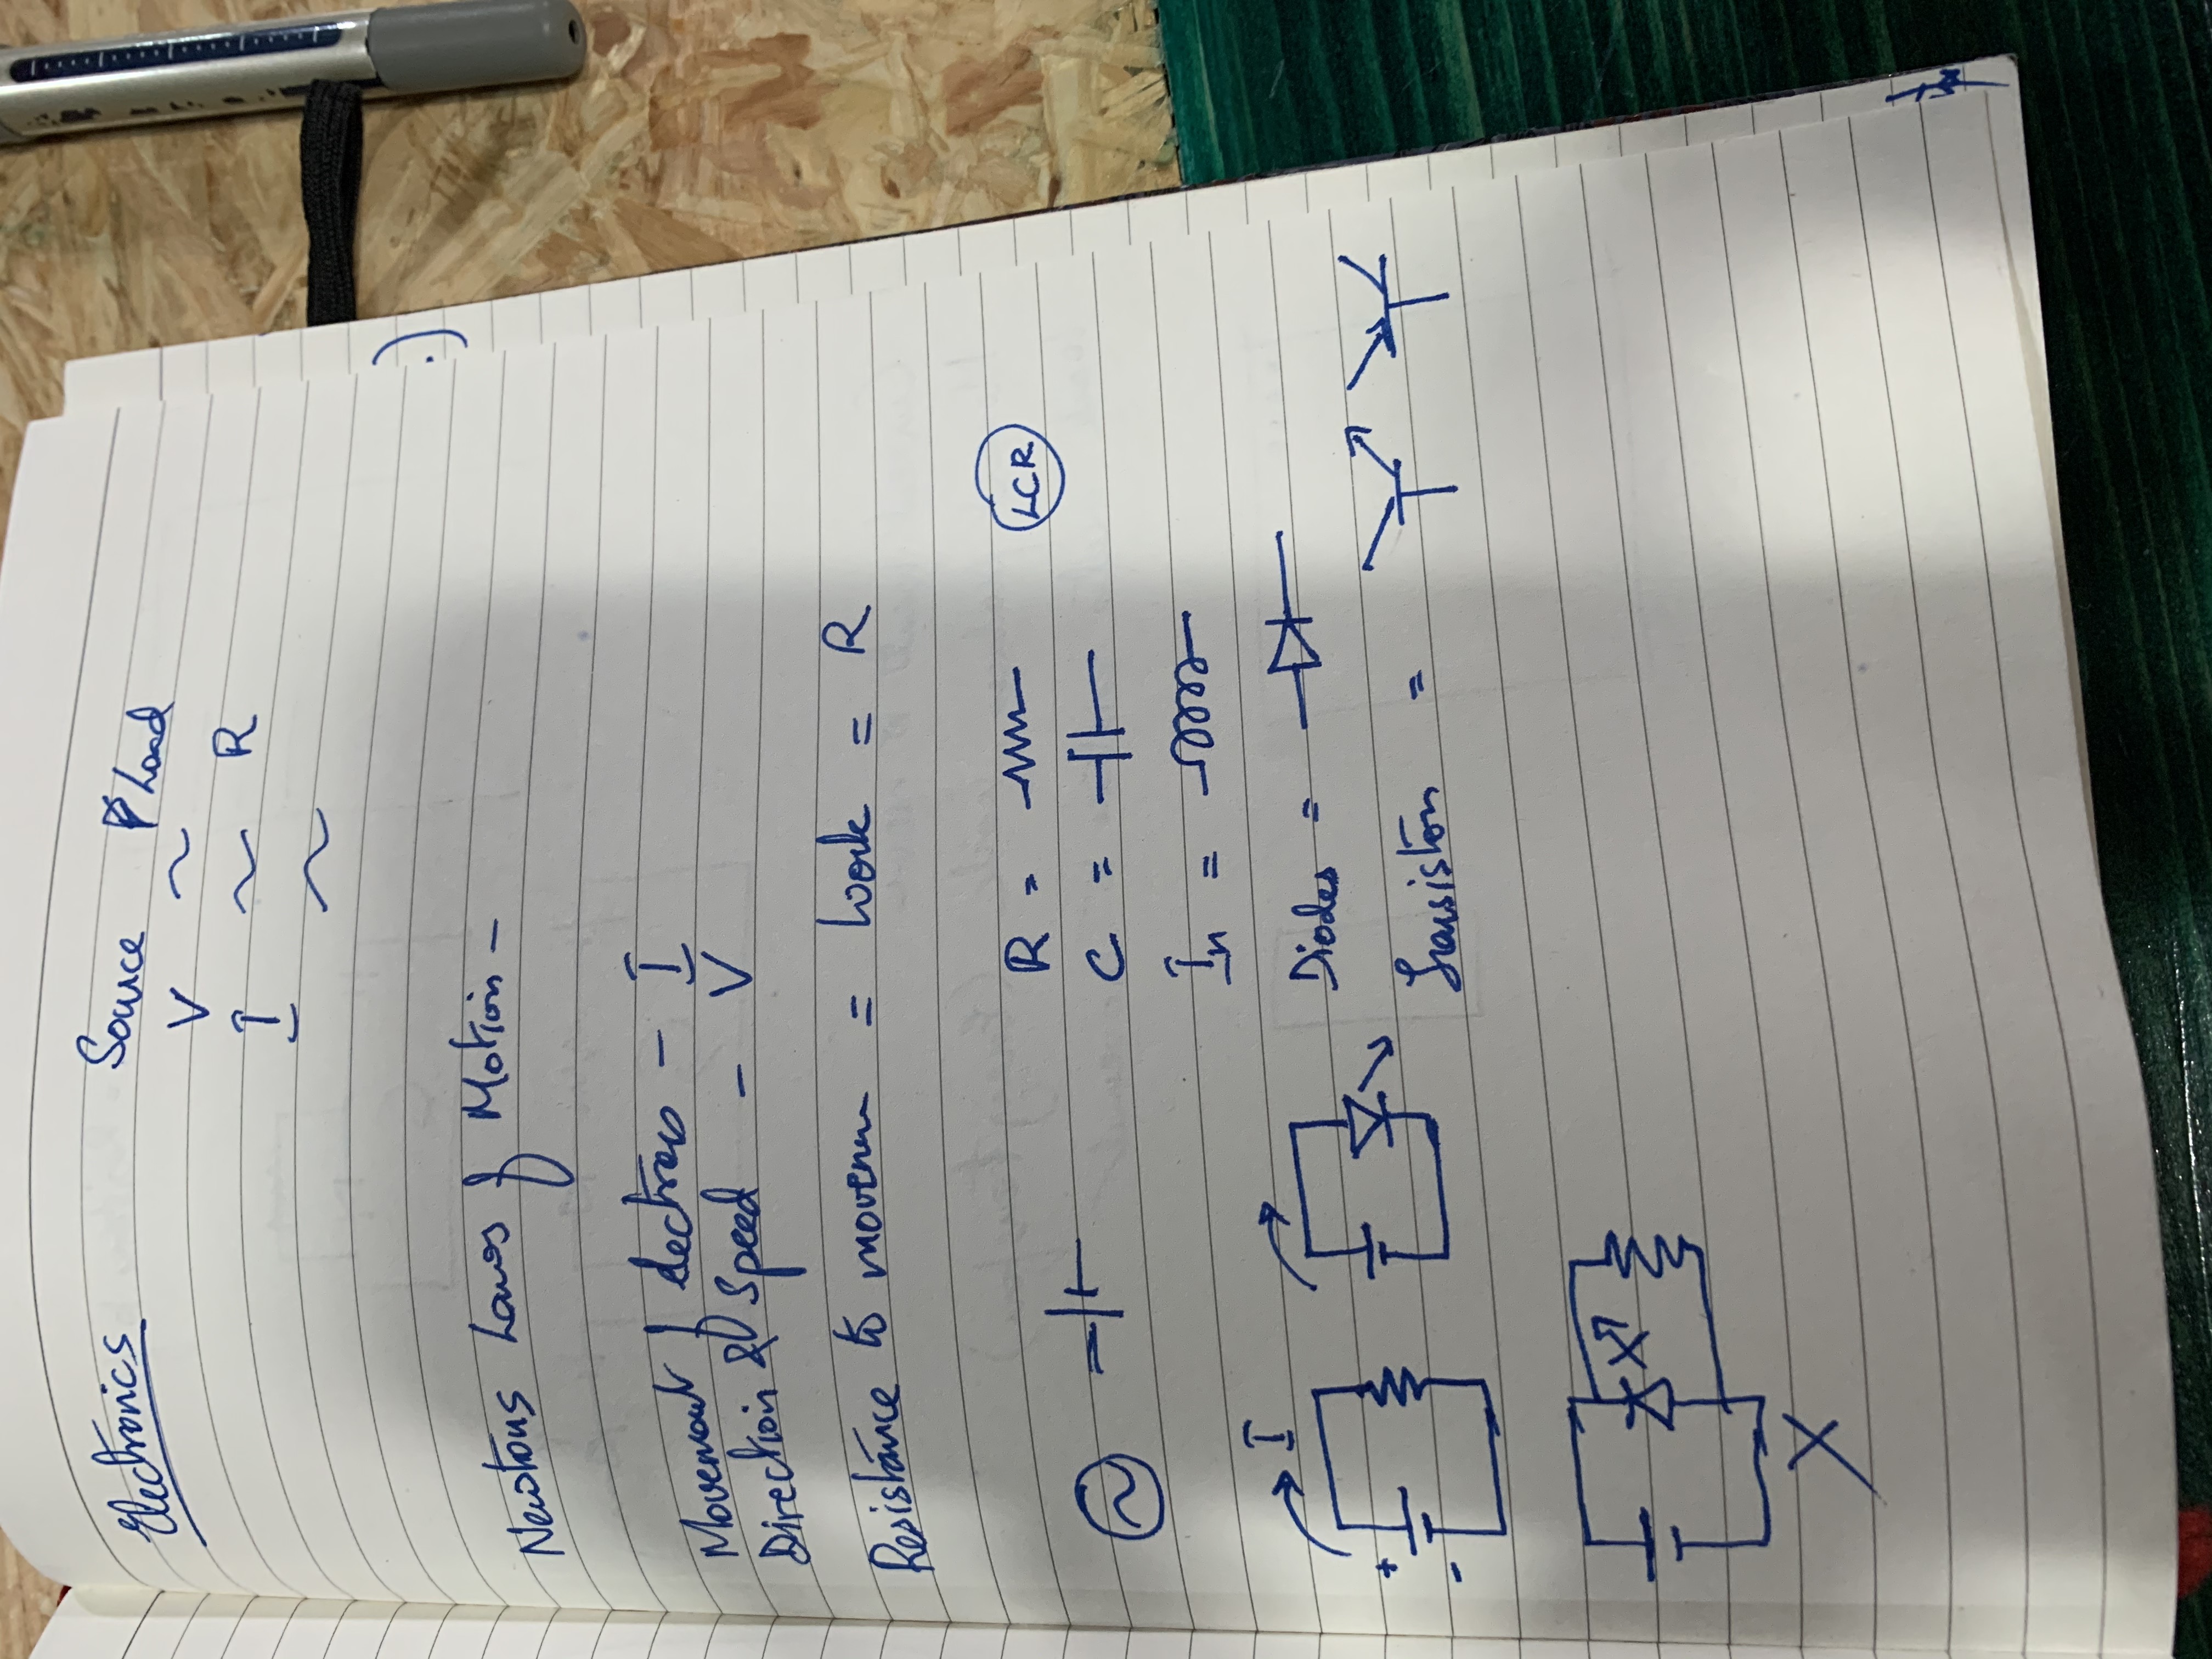 Electronics Source Load
V ~
I ~ R
~
Newtons Laws of Motion -
Movement of electrons - I
Direction & Speed - V
Resistance to movemen = Work = R
R = LCR
C =
In =
I
Diodes =
+
-
Transistors =
X
X